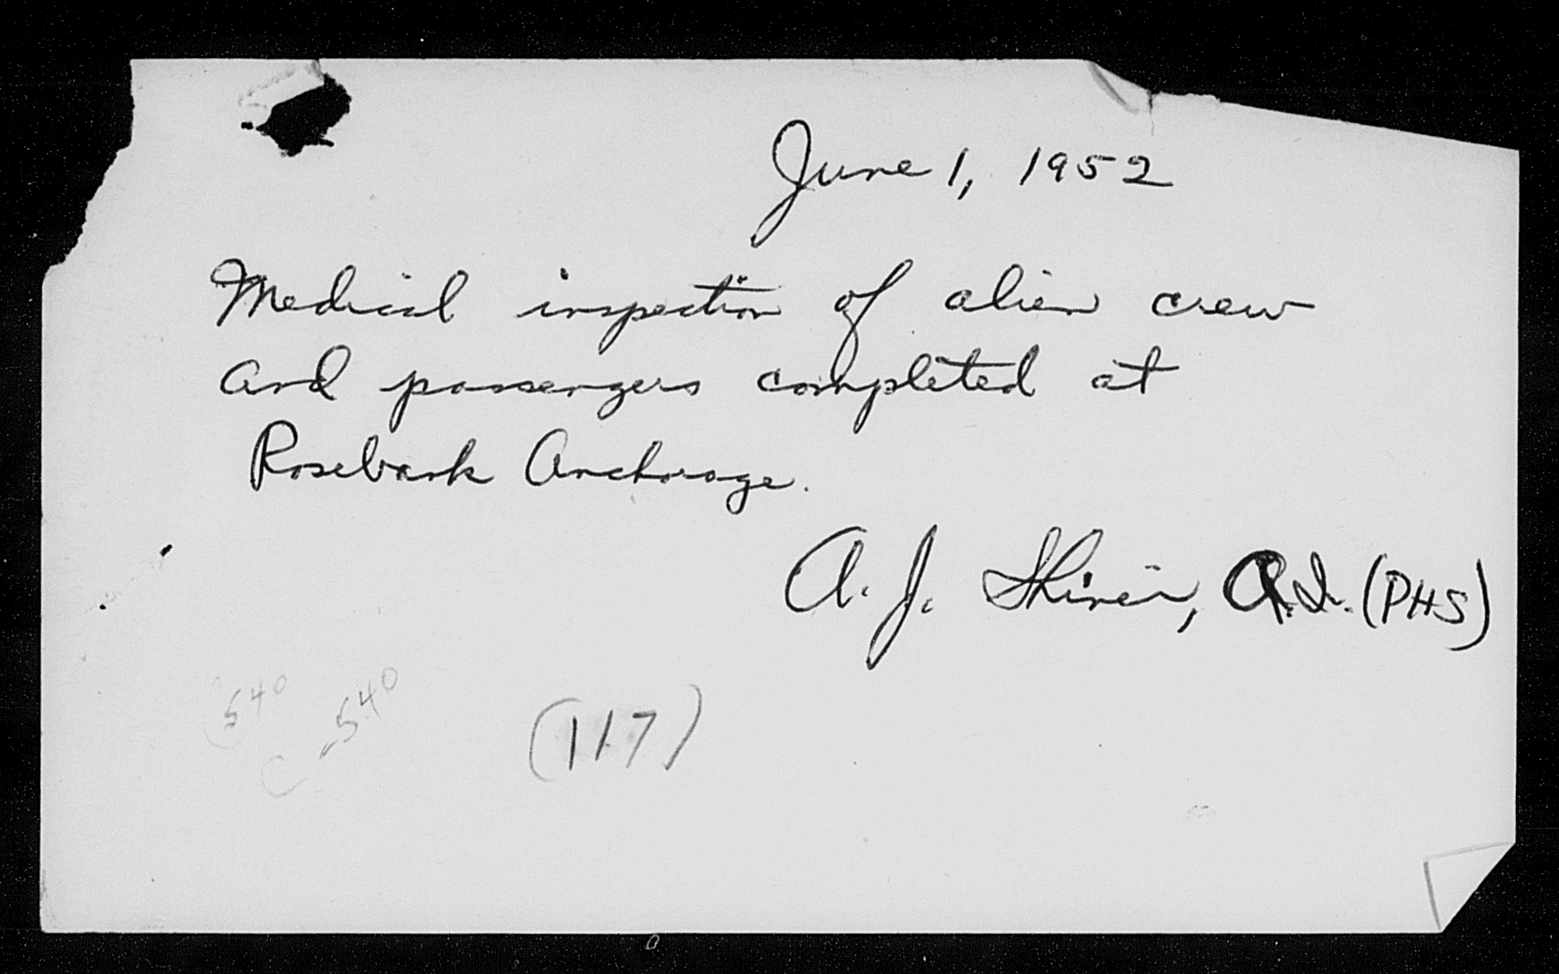 June 1, 1952
Medical inspection of alien crew
and passengers completed at
Rosebank Anchorage.
A. J. (PHS)
540
C-540
(117)